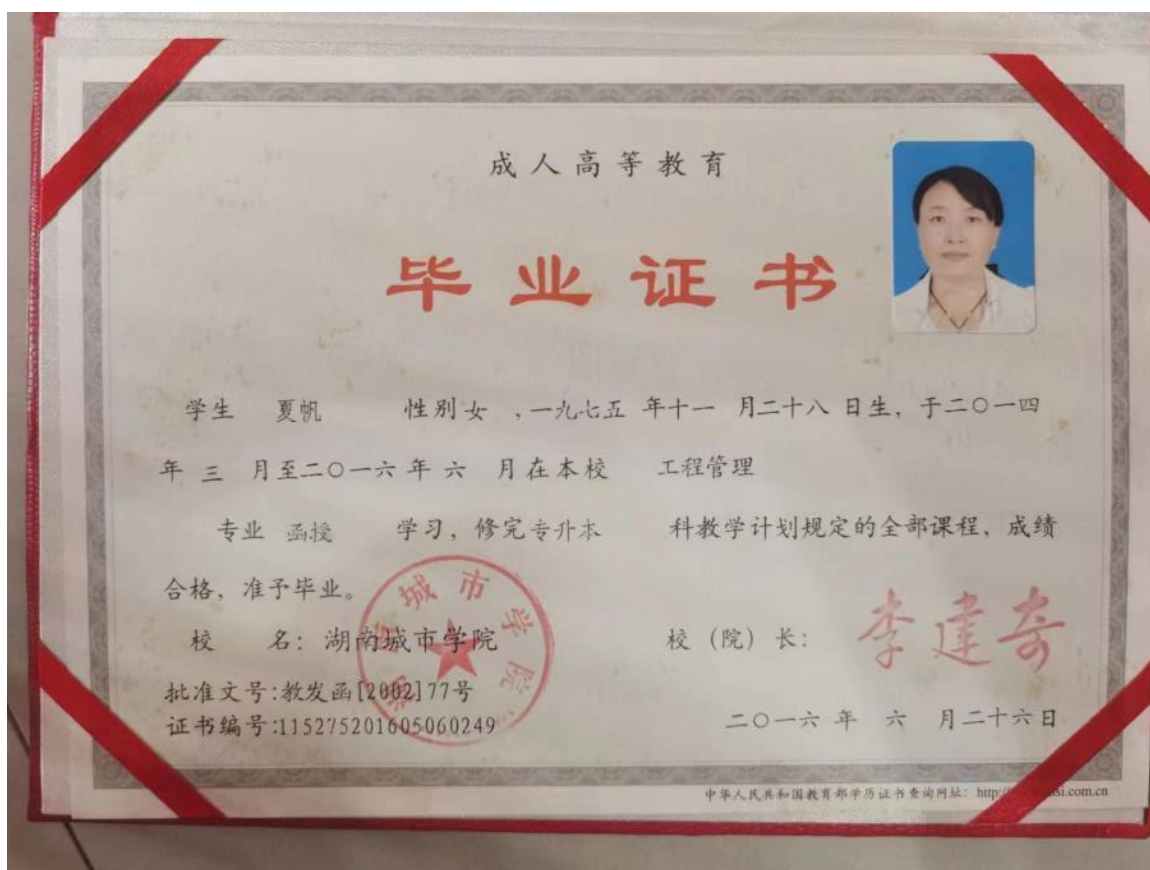 成人高等教育
毕业证书
学生 夏帆 性别 女 ,一九七五 年十一 月二十八 日生，于二〇一四
年 三 月至二〇一六 年 六 月在本校 工程管理
专业 函授 学习，修完专升本 科教学计划规定的全部课程，成绩
合格，准予毕业。
城市学院
校 名：湖南城市学院 校（院）长：李建奇
批准文号:教发函[2002]77号
证书编号:115275201605060249
二〇一六 年 六 月二十六日
中华人民共和国教育部学历证书查询网址：http:/ si.com.cn